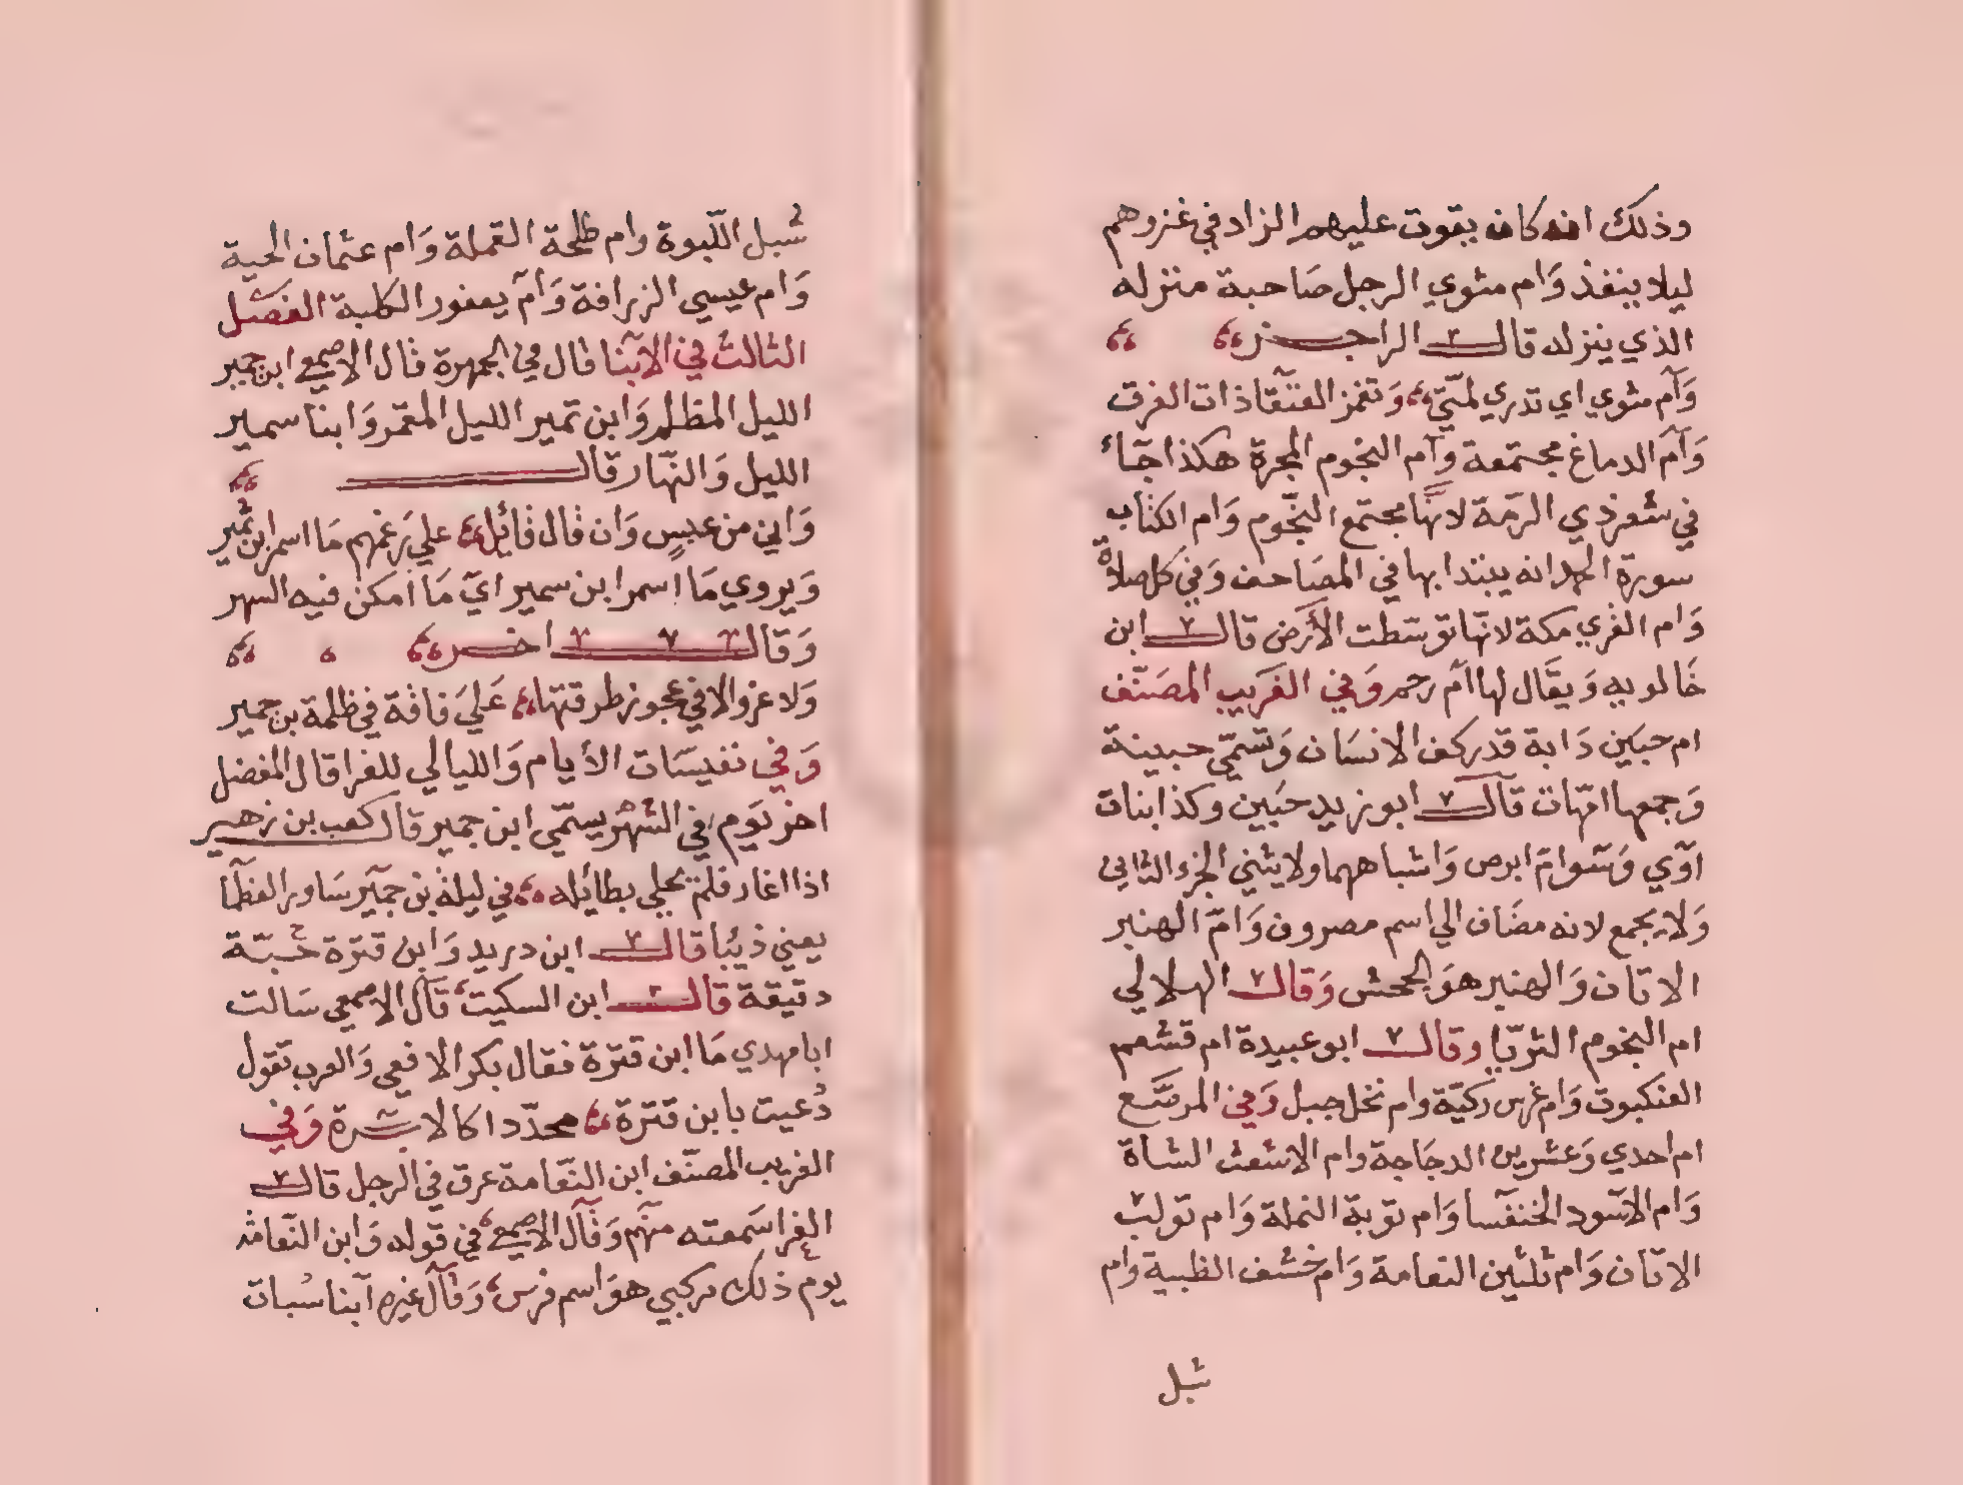 وذلك انه كان يقوت عليهم الزاد في غزوهم
ليلا ينفذ وَام مثوي الرجل صَاحبة منزله
الذي ينزله قال الراجز
وَأم مثوي اي تدري لمّتي وَتغمز القنقآ ذات الفرق
وَأم الدماغ مجتمعة وَأم النجوم المجرة هكذا جَاء
في شعر ذي الرمّة لانهَا مجتمع النجّوم وَام الكتاب
سورة الحمد انه يبتدا بها في المصَاحف وَفي كل صلاة
وَام القري مكة لانهّا توسّطت الأرض قال ابن
خَالويه وَيقَال لها أم رحم وَفي الغَريب المصَنّف
ام حبَين دَابة قدر كف الانسَان وَتسَمّي حبينة
وَجمعها امّهات قآل ابو زيد حبَين وكذا بنات
اوّي وَسَوامّ ابرص وَاشباههما ولا يثني الجزء الثاني
وَلا يجمع لانه مضَاف الي اسم مصروف وَامّ الهنبر
الاتان وَالهنبر هوَ الجحش وَقال الهلالي
ام النجوم الثريّا وقال ابو عبيدة ام قشعم
العنكبوت وَام غرس ركيّة وام نخل جبل وَفي المرصّع
ام احدي وَعشرين الدجَاجة وام الاشعث الشاة
وَام الاسَود الخنفسَا وَام توبة النملة وَام تولب
الاتان وَام ثلثين النعامة وَام خشف الظبية وام
شبل
شبل اللّبوة وام طلحة القملة وَام عثمان الحية
وَام عيسي الزرافة وَأم يعفور الكلبة الفصَل
الثالث في الابنا قال في الجمهرة قال الاصمعي ابن جمير
الليل المظلم وَابن تمير الليل المقمر وَابنا سمير
الليل وَالنهّار قال
وَاني من عبسٍ وَان قال قائِل علي رَغمهم مَا اسمر ابن تمير
وَيروي مَا اسمر ابن سمير ايّ مَا امكن فيه السهر
وَقال اخر
وَلا غرو الا في عجوز طرقتها عَليَ فاقة في ظلمة بن جمير
وَفي نفيسَات الأيام وَالليالي للفرا قال المفضل
اخر يَوم في الشهر يسمّي ابن جمير قال كعب بن زهير
اذا اغار فلم يحلي بطائله في ليلة بن جمير سَاور الفطما
يعني ذيبا قال ابن دريد وَابن قترّة حَيّة
دقيقة قال ابن السكيت قآل الاصمعي سَالت
ابا مهدي مَا ابن قترّة فقال بكر الافعي وَالعرب تقول
دُعيت بابن قترة محدّدا كالابرة وَفي
الغريب المصنّف ابن النعّامة عرق في الرجل قال
الفرا سَمعته منهم وَقآل الاصمعي في قوله وَابن النعّامة
يوم ذلك مركبي هوَ اسم فرس وَقآل غيره ابنا سُبات